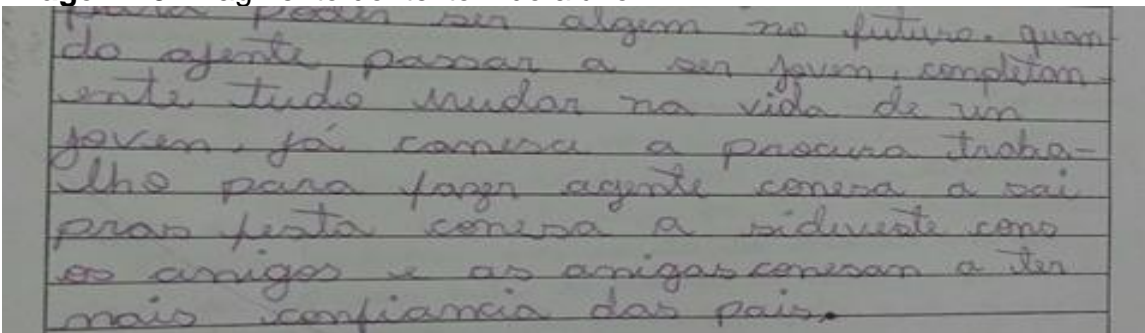 para poder ser algem no futuro. quan
do agente passar a ser joven, completan-
ente tudo mudar na vida de un
joven, já comesa a procura traba-
lho para fazer agente comesa a sai
pras festa comesa a sidiveste como
os amigos e as amigas comesan a ter
mais confiancia das pais.